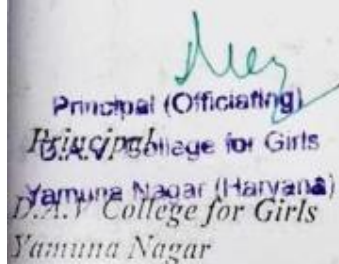 Principal (Officiating)
Principal
D.A.V College for Girls
Yamuna Nagar (Haryana)
D.A.V College for Girls
Yamuna Nagar